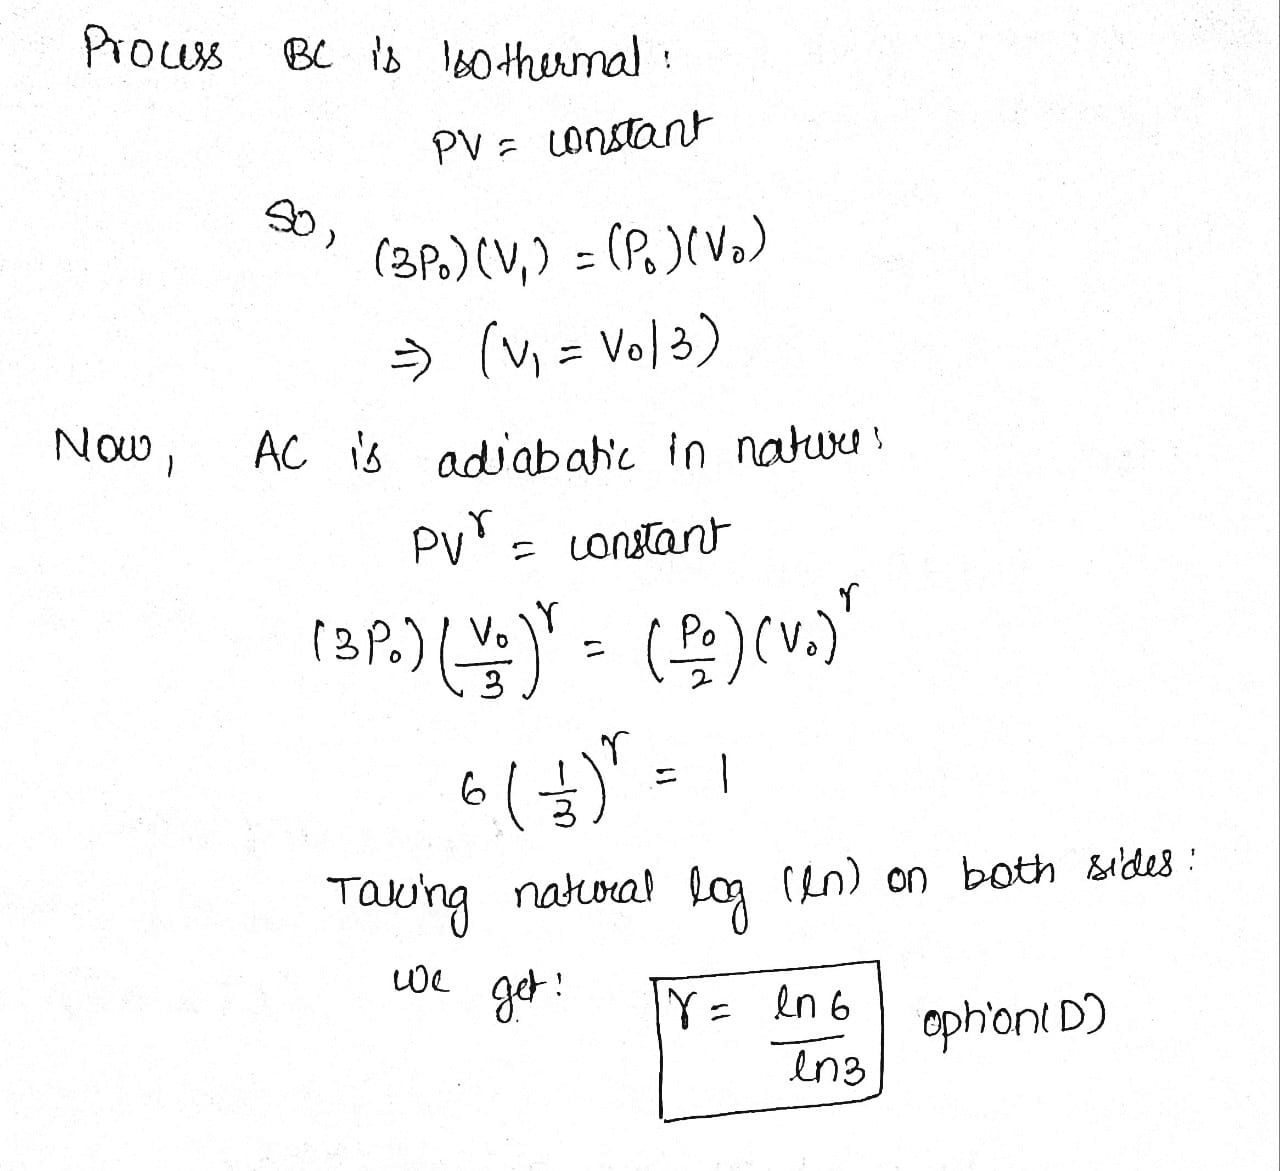 Process BC is Isothermal :
PV = constant
So, (3P₀)(V₁) = (P₀)(V₀)
⇒ (V₁ = V₀/3)
Now, AC is adiabatic in nature:
PV^γ = constant
(3P₀)(V₀/3)^γ = (P₀/2)(V₀)^γ
6(1/3)^γ = 1
Taking natural log (ln) on both sides :
we get: γ = ln 6 / ln 3 option(D)